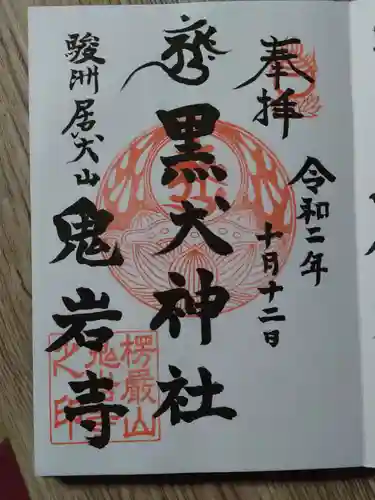 奉拝
令和二年
十月十二日
黒犬神社
駿洲居犬山
鬼岩寺
楞厳山
鬼岩寺
之印